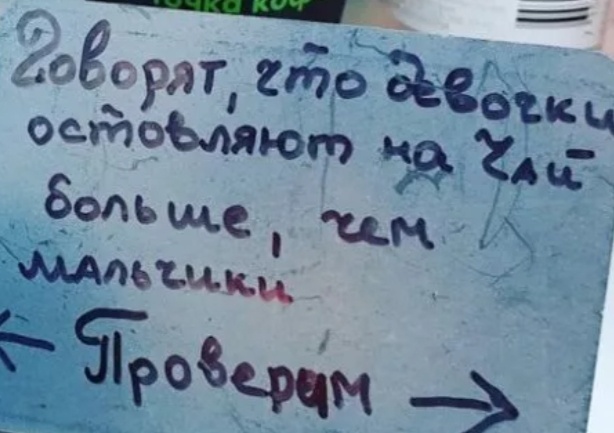 точка коф
Говорят, что девочки
остовляют на чай
больше, чем
мальчики
← Проверим →